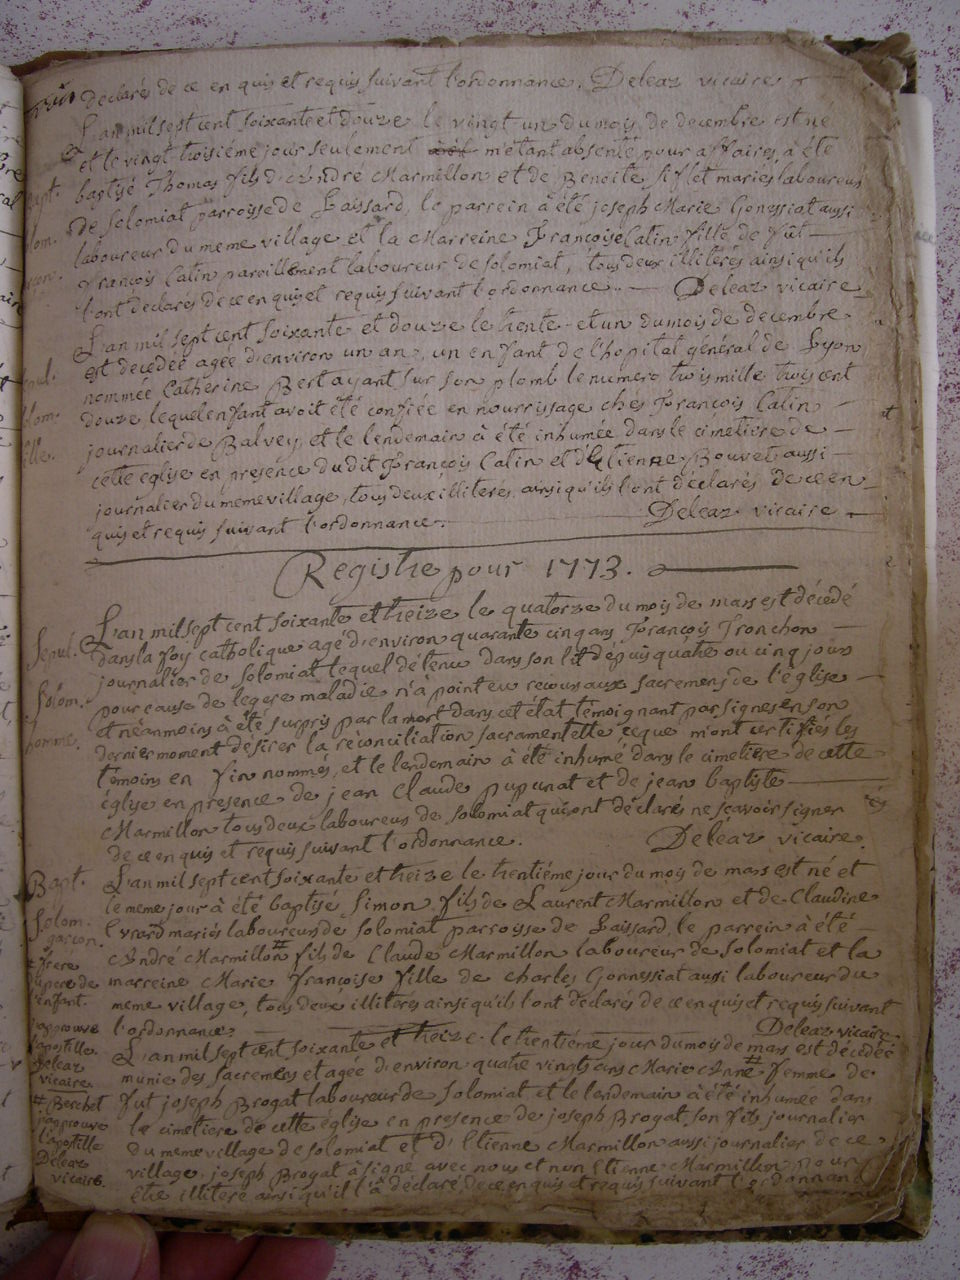 declarés de ce enquis et requis suivant l'ordonnance. Deleaz vicaire
L'an mil sept cent soixante et douze le vingt un du mois de decembre est né
et le vingt troisiéme jour seulement m'etant absenté pour affaires, à été
baptisé Thomas fils d'André Marmillon et de Benoite Siflet mariés laboureurs
de Solomiat parroisse de Laissard, le parrein à été joseph Marie Gonessiat aussi
laboureur du meme village et la Marreine Françoise Catin fille de fût
François Catin pareillement laboureur de Solomiat, tous deux illitérés ainsi qu'ils
l'ont declarés de ce enquis et requis suivant l'ordonnance. Deleaz vicaire
L'an mil sept cent soixante et douze le trente et un du mois de decembre
est decedée agée d'environ un an, un enfant de l'hopital général de Lyon
nommée Catherine Bert ayant sur son plomb le numero trois mille trois cent
douze, lequel enfant avoit été confiée en nourrissage ches François Catin
journalier de Balvey, et le lendemain à été inhumée dans le cimetiere de
cette eglise en presence dudit François Catin et d'Etienne Bouvet aussi
journalier du meme village, tous deux illiterés ainsi qu'ils l'ont déclarés de ce en
quis et requis suivant l'ordonnance. Deleaz vicaire
Registre pour 1773.
Sepul.
Solom.
homme.
L'an mil sept cent soixante et treize le quatorze du mois de mars est décédé
dans la foy catholique agé d'environ quarante cinq ans François Tronchon
journalier de Solomiat lequel détenu dans son lit depuis quatre ou cinq jours
pour cause de legere maladie n'à point eu recours aux sacremens de l'église
et néanmoins à été surpris par la mort dans cet état témoignant par signes en son
dernier moment désirer la réconciliation sacramentelle ce que m'ont certifiés les
témoins en fin nommés, et le lendemain à été inhumé dans le cimetiere de cette
église en presence de jean Claude pupunat et de jean baptiste
Marmillon tous deux laboureurs de Solomiat qui ont déclarés ne scavoir signer
de ce enquis et requis suivant l'ordonnance. Deleaz vicaire.
Bapt.
Solom.
garçon.
L'an mil sept cent soixante et treize le trentiéme jour du mois de mars est né et
le meme jour à été baptisé Simon fils de Laurent Marmillon et de Claudine
Evrard mariés laboureurs de Solomiat parroisse de Laissard, le parrein à été
André Marmillon # fils de Claude Marmillon laboureur de Solomiat et la
marreine Marie Françoise fille de charles Gonnessiat aussi laboureur du
meme village, tous deux illiterés ainsi qu'ils l'ont déclarés de ce enquis et requis suivant
l'ordonnance. Deleaz vicaire
frere
du pere de
l'enfant.
j'approuve
l'apostille
Deleaz
vicaire.
L'an mil sept cent soixante et treize le trentiéme jour du mois de mars est décédée
munie des sacremens et agée d'environ quatre vingts ans Marie Anne # femme de
fut joseph Brogat laboureur de Solomiat et le lendemain à été inhumée dans
le cimetiere de cette église en presence de joseph Brogat son fils journalier
du meme village de Solomiat et d'Etienne Marmillon aussi journalier de ce
village. joseph Brogat à signé avec nous et non Etienne Marmillon pour
être illiteré ainsi qu'il l'à déclaré de ce enquis et requis suivant l'ordonnance
# Berchet
j'approuve
l'apostille
Deleaz
vicaire.